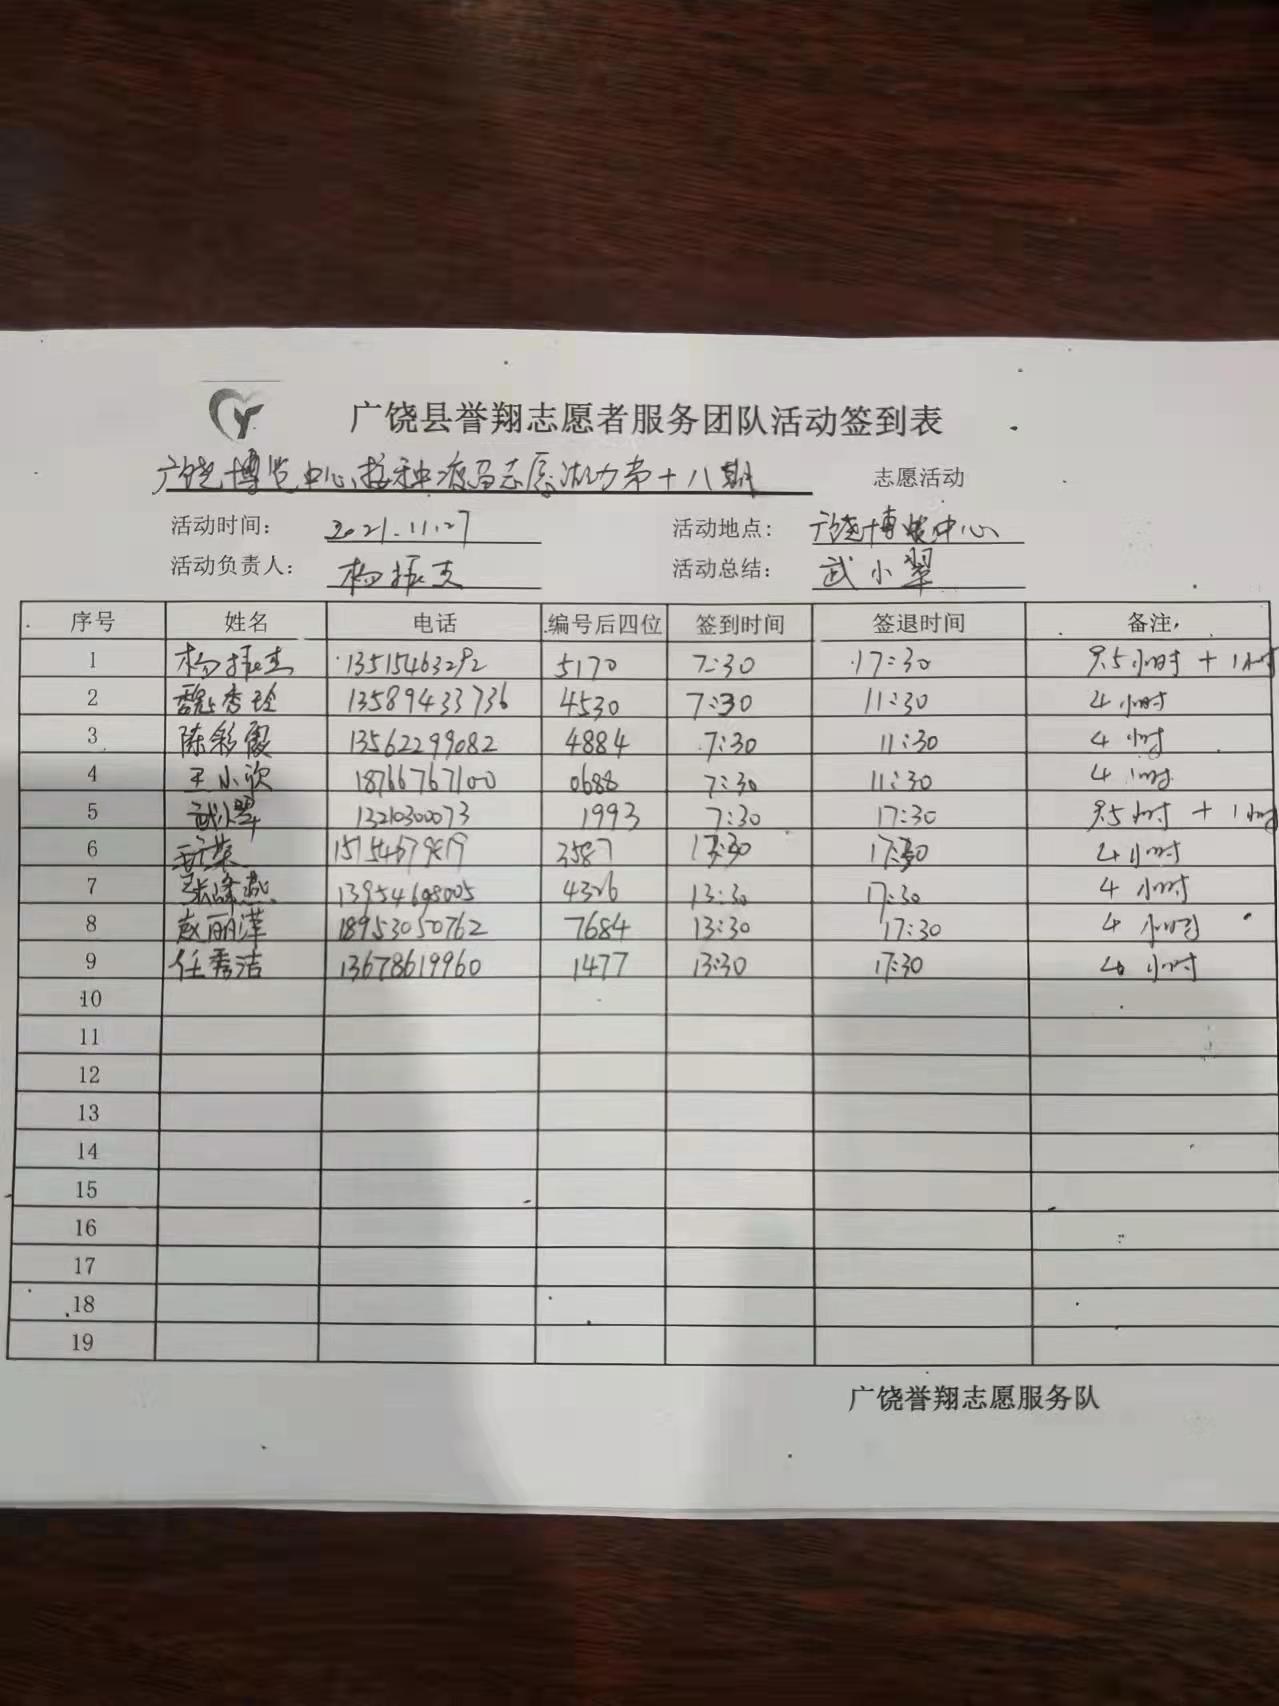 广饶县誉翔志愿者服务团队活动签到表
广饶博览中心接种疫苗志愿活动第十八期 志愿活动
活动时间： 2021.11.27 活动地点： 广饶博览中心
活动负责人： 杨振杰 活动总结： 武小翠
序号 姓名 电话 编号后四位 签到时间 签退时间 备注
1 杨振杰 13515463292 5170 7:30 17:30 9.5小时 + 1小时
2 魏秀玲 13589433736 4530 7:30 11:30 4小时
3 陈彩霞 13562299082 4884 7:30 11:30 4小时
4 王小欣 18766767100 0688 7:30 11:30 4小时
5 武小翠 13210300073 1993 7:30 17:30 9.5小时 + 1小时
6 3587 13:30 17:30 4小时
7 张峰燕 13954698005 4326 13:30 17:30 4小时
8 赵丽萍 18953050762 7684 13:30 17:30 4小时
9 任秀洁 13678619960 1477 13:30 17:30 4小时
10
11
12
13
14
15
16
17
18
19
广饶誉翔志愿服务队